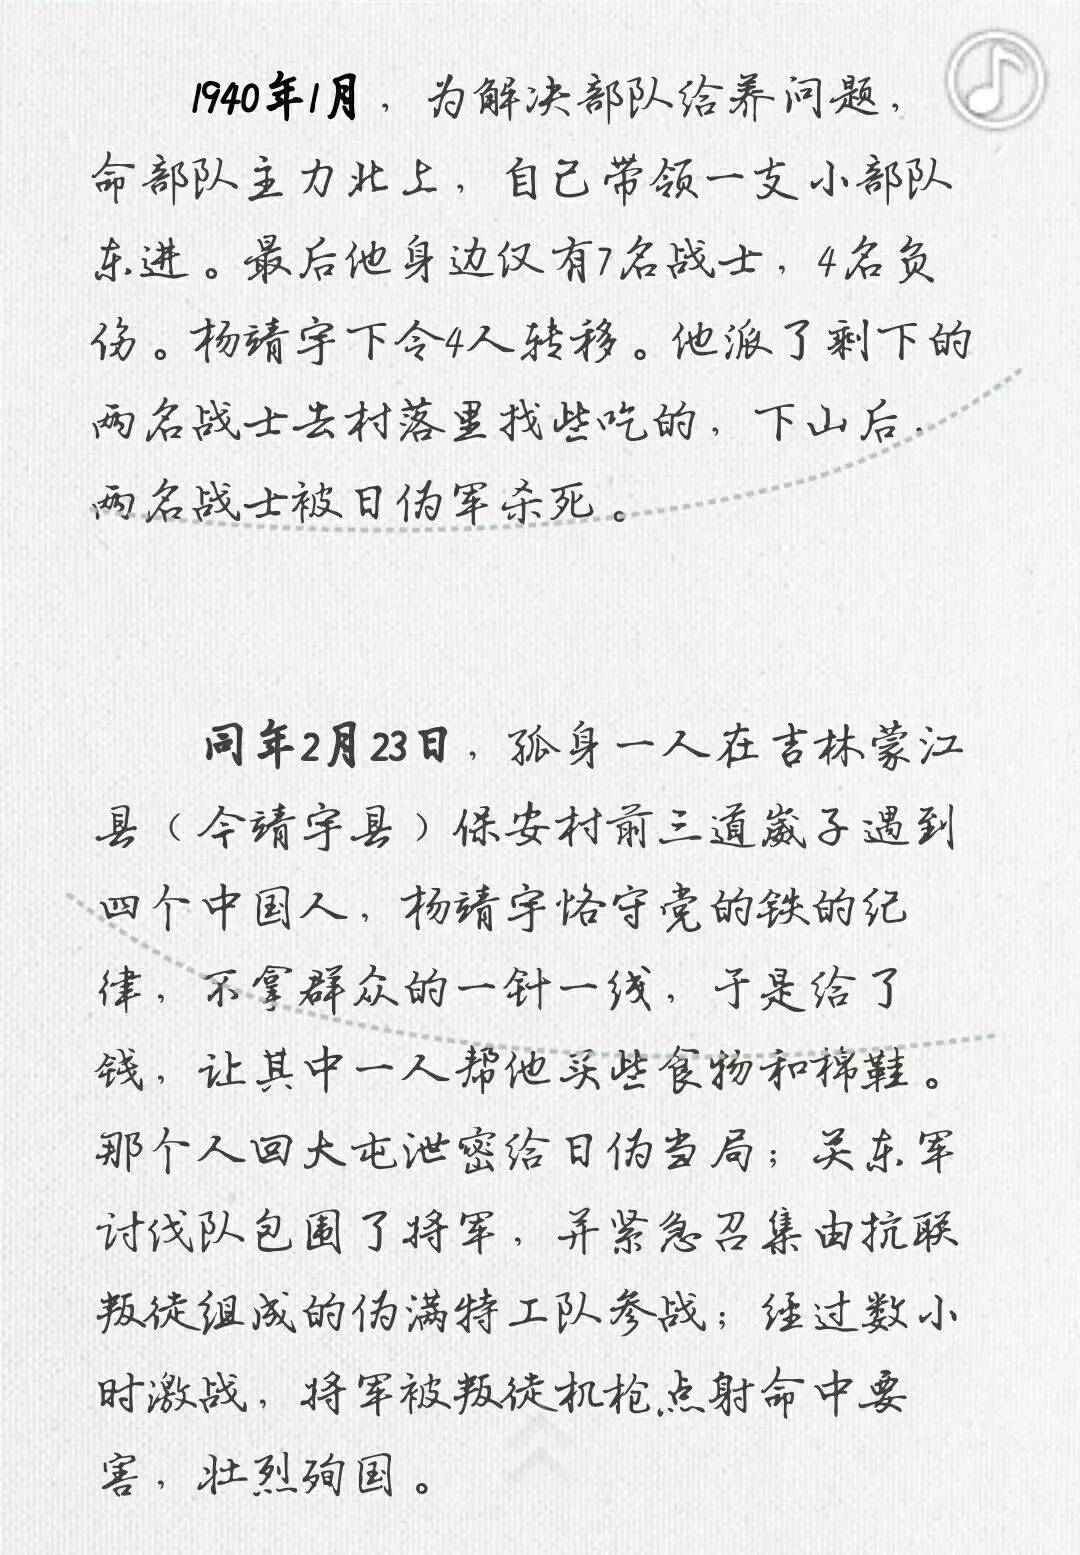 1940年1月，为解决部队给养问题，
命部队主力北上，自己带领一支小部队
东进。最后他身边仅有7名战士，4名负
伤。杨靖宇下令4人转移。他派了剩下的
两名战士去村落里找些吃的，下山后.
两名战士被日伪军杀死。
同年2月23日，孤身一人在吉林蒙江
县（今靖宇县）保安村前三道崴子遇到
四个中国人，杨靖宇恪守党的铁的纪
律，不拿群众的一针一线，于是给了
钱，让其中一人帮他买些食物和棉鞋。
那个人回大屯泄密给日伪当局；关东军
讨伐队包围了将军，并紧急召集由抗联
叛徒组成的伪满特工队参战；经过数小
时激战，将军被叛徒机枪点射命中要
害，壮烈殉国。